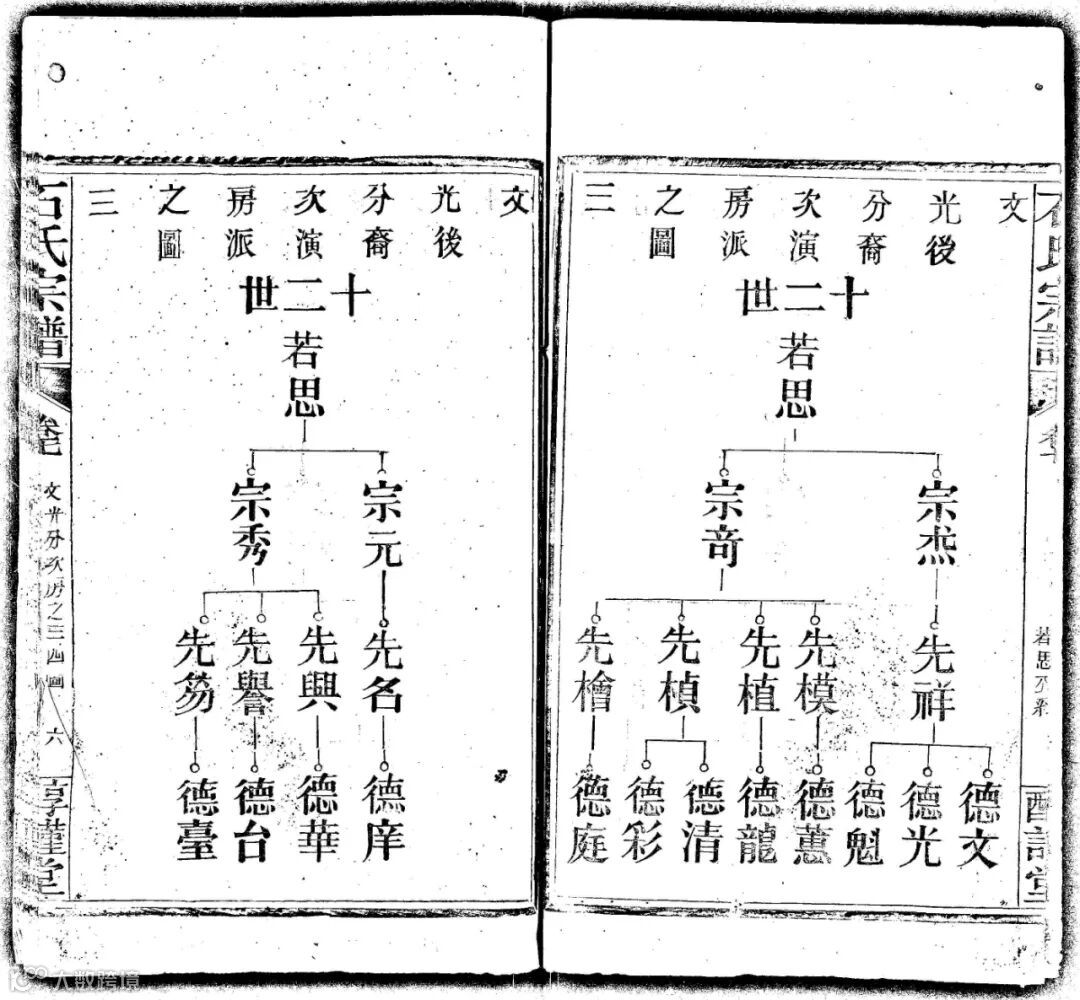 文
光後
分裔
次演
房派
之圖
三
十二世
若思
宗杰
宗奇
先祥
先模
先植
先楨
先檜
德文
德光
德魁
德蕙
德龍
德清
德彩
德庭
石氏宗譜
若思
文
光後
分裔
次演
房派
之圖
三
十二世
若思
宗元
宗秀
先名
先興
先譽
先芴
德庠
德華
德台
德臺
石氏宗譜
文光分次房之三四圖
六
大数跨境